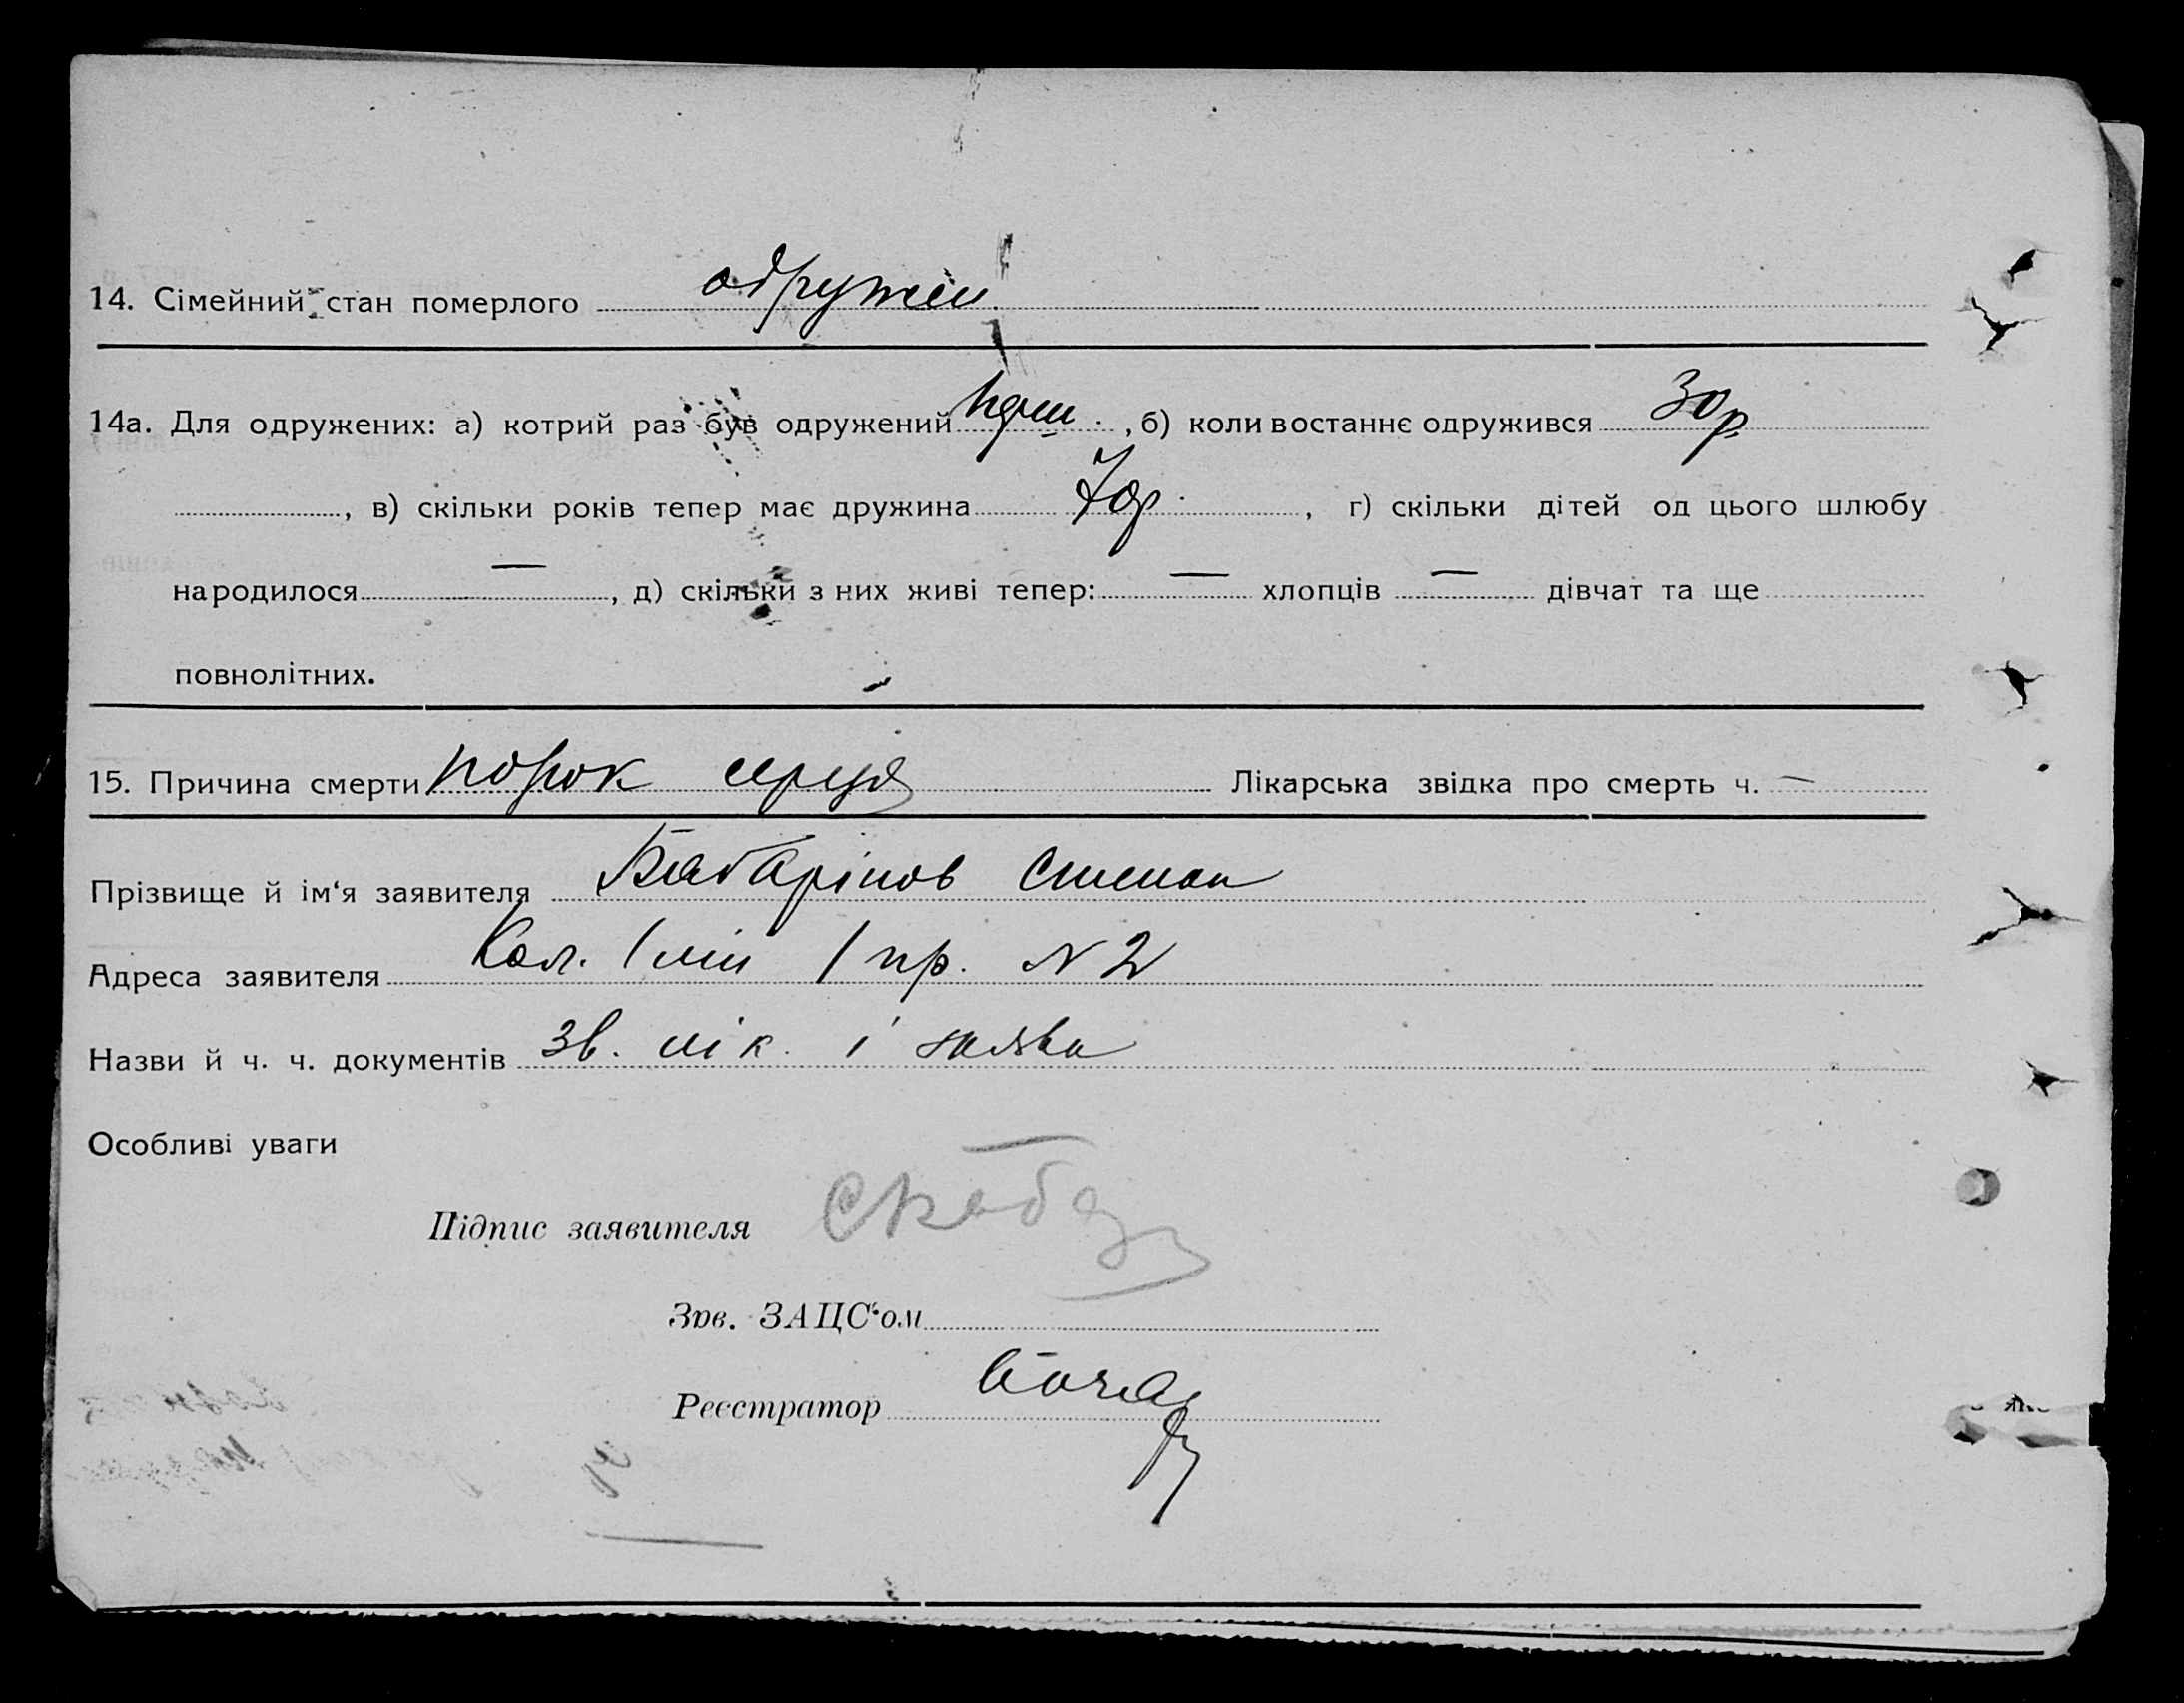 14. Сімейний стан померлого одружен
14а. Для одружених: а) котрий раз був одружений перш. , б) коли востаннє одружився 30 р.
, в) скільки років тепер має дружина 70 р. , г) скільки дітей од цього шлюбу
народилося — , д) скільки з них живі тепер: — хлопців — дівчат та ще
повнолітних.
15. Причина смерти порок серця Лікарська звідка про смерть ч. —
Прізвище й ім‘я заявителя Степан
Адреса заявителя Кол. 1 лін 1 пр. N 2
Назви й ч. ч. документів зв. лік. і заява
Особливі уваги
Підпис заявителя
Зав. ЗАЦС‘ом
Реєстратор